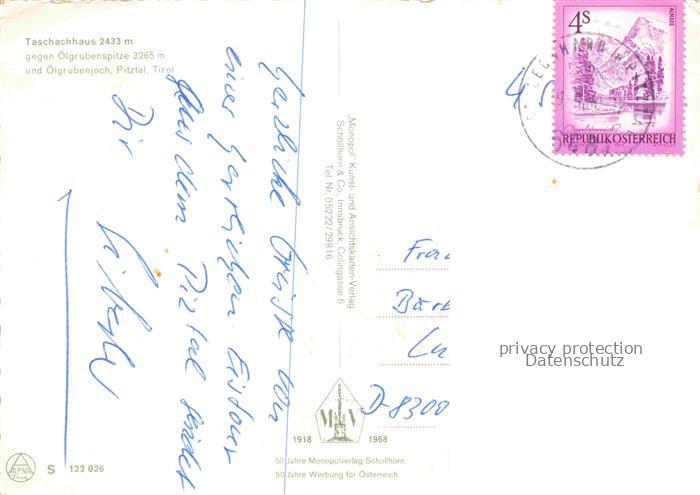 Taschachhaus 2433 m
gegen Ölgrubenspitze 3265 m
und Ölgrubenjoch, Pitztal, Tirol
Herzliche Grüße von
einer herrlichen Eistour
aus dem Pitztal sendet
Dir
„Monopol“ Kunst- und Ansichtskarten-Verlag
Schöllhorn & Co., Innsbruck, Colingasse 6
Tel. Nr. 05222/29816
4S
ALMSEE
REPUBLIK ÖSTERREICH
Frau
Barb
D-8300
privacy protection
Datenschutz
M V
1918 1968
50 Jahre Monopolverlag Schöllhorn
50 Jahre Werbung für Österreich
ALPINA
S 122 026